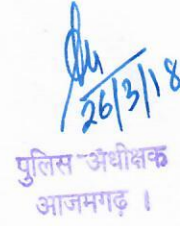 26/3/18
पुलिस अधीक्षक
आजमगढ़ ।